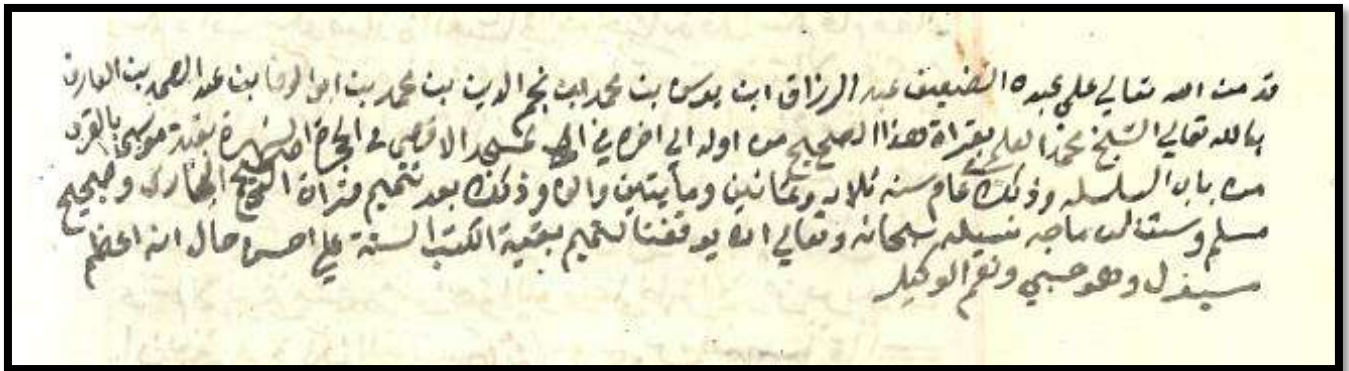 قد من الله تعالي علي عبده الضعيف عبد الرزاق ابن يوسف بن محمد ابن نجم الدين بن محمد بن ابي الوفا بن عبد الصمد بن العارف
بالله تعالي الشيخ محمد العلمي بقراة هذا الصحيح من اوله الي اخره في المسجد الاقصى في الحجرة الشهيرة بقبة موسى بالقرب
من باب السلسله وذلك عام سنة ثلاث وثمانين ومأيتين والف وذلك بعد تتميم قراة الصحيح البخاري وصحيح
مسلم وسنن ابن ماجه نسيله سبحانه وتعالي ان يوفقنا لتتميم بقية الكتب الستة علي احسن حال انه اعظم
مسيول وهو حسبي ونعم الوكيل